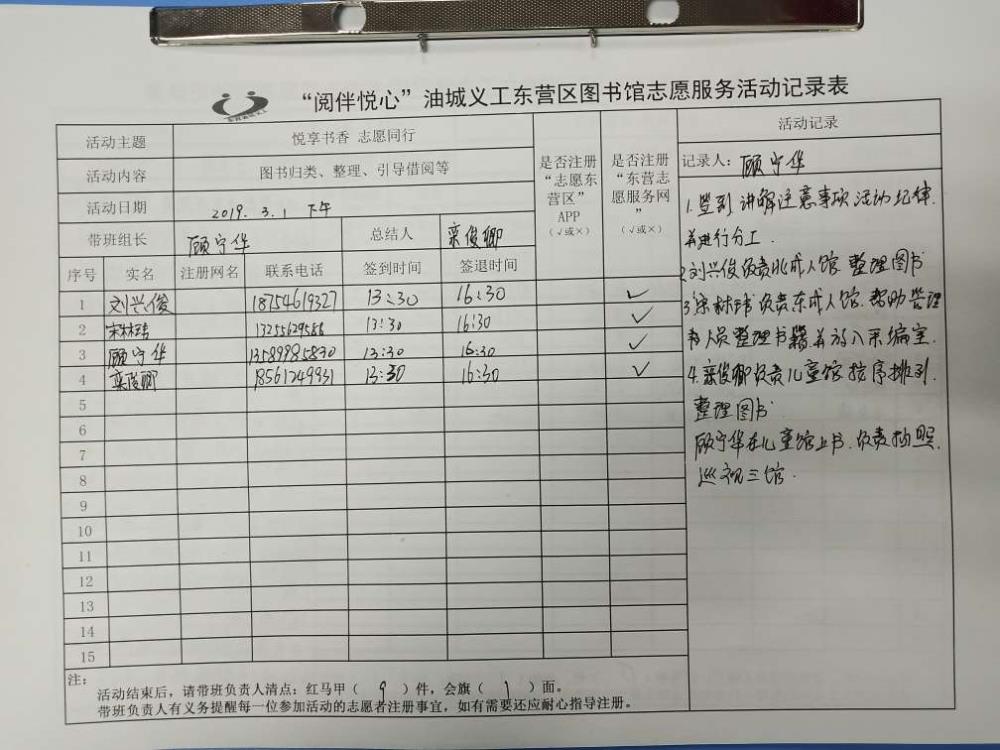 “阅伴悦心”油城义工东营区图书馆志愿服务活动记录表
活动主题 悦享书香 志愿同行
活动内容 图书归类、整理、引导借阅等
活动日期 2019.3.1 下午
带班组长 顾宁华 总结人 栾俊卿
是否注册“志愿东营区”APP（√或×）
是否注册“东营志愿服务网”（√或×）
序号 实名 注册网名 联系电话 签到时间 签退时间
1 刘兴俊 18754619327 13:30 16:30 √
2 宋林琦 13255629586 13:30 16:30 √
3 顾宁华 13589985830 13:30 16:30 √
4 栾俊卿 18561249931 13:30 16:30 √
5
6
7
8
9
10
11
12
13
14
15
活动记录
记录人：顾宁华
1.签到 讲解注意事项 活动纪律.
并进行分工.
2.刘兴俊负责北成人馆 整理图书
3.宋林琦负责东成人馆.帮助管理
书人员整理书籍并放入采编室.
4.栾俊卿负责儿童馆按序排列.
整理图书
顾宁华在儿童馆上书.负责拍照.
巡视三馆.
注：
活动结束后，请带班负责人清点：红马甲（ 9 ）件，会旗（ 1 ）面。
带班负责人有义务提醒每一位参加活动的志愿者注册事宜，如有需要还应耐心指导注册。